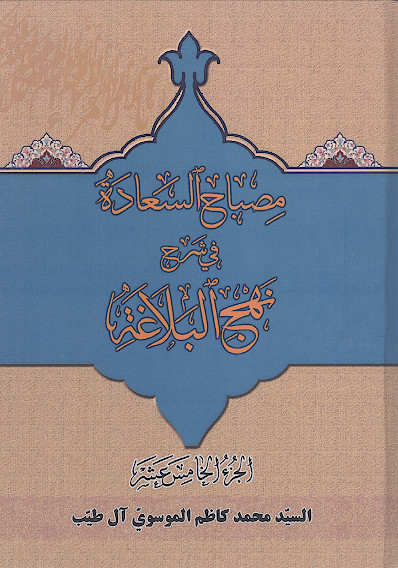 مصباح السعادة
في شرح
نهج البلاغة
الجزء الخامس عشر
السيّد محمد كاظم الموسويّ آل طيّب